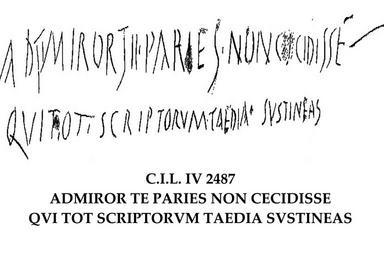 ADMIROR TII PARIES NON CECIDISSE
QVI TOT SCRIPTORVM TAEDIA SVSTINEAS
C.I.L. IV 2487
ADMIROR TE PARIES NON CECIDISSE
QVI TOT SCRIPTORVM TAEDIA SVSTINEAS